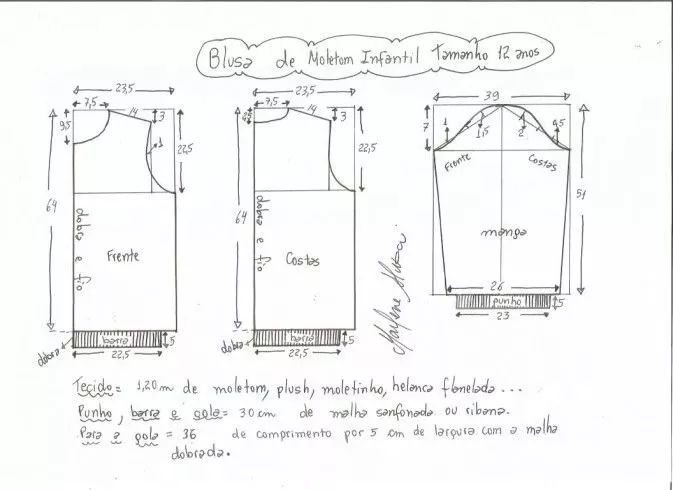 Blusa de Moletom Infantil Tamanho 12 anos
23,5
7,5
14
3
9,5
1
22,5
64
dobra e fio
Frente
barra
5
dobra
22,5
23,5
7,5
14
3
22,5
64
dobra e fio
Costas
barra
5
dobra
22,5
39
7
1
1,5
2
Frente
Costas
51
manga
26
punho
5
23
Marlene Mukai
Tecido = 1,20 m de moletom, plush, moletinho, helanca flanelada ...
Punho, barra e gola = 30 cm de malha sanfonada ou ribana.
Para a gola = 36 de comprimento por 5 cm de largura com a malha
dobrada.